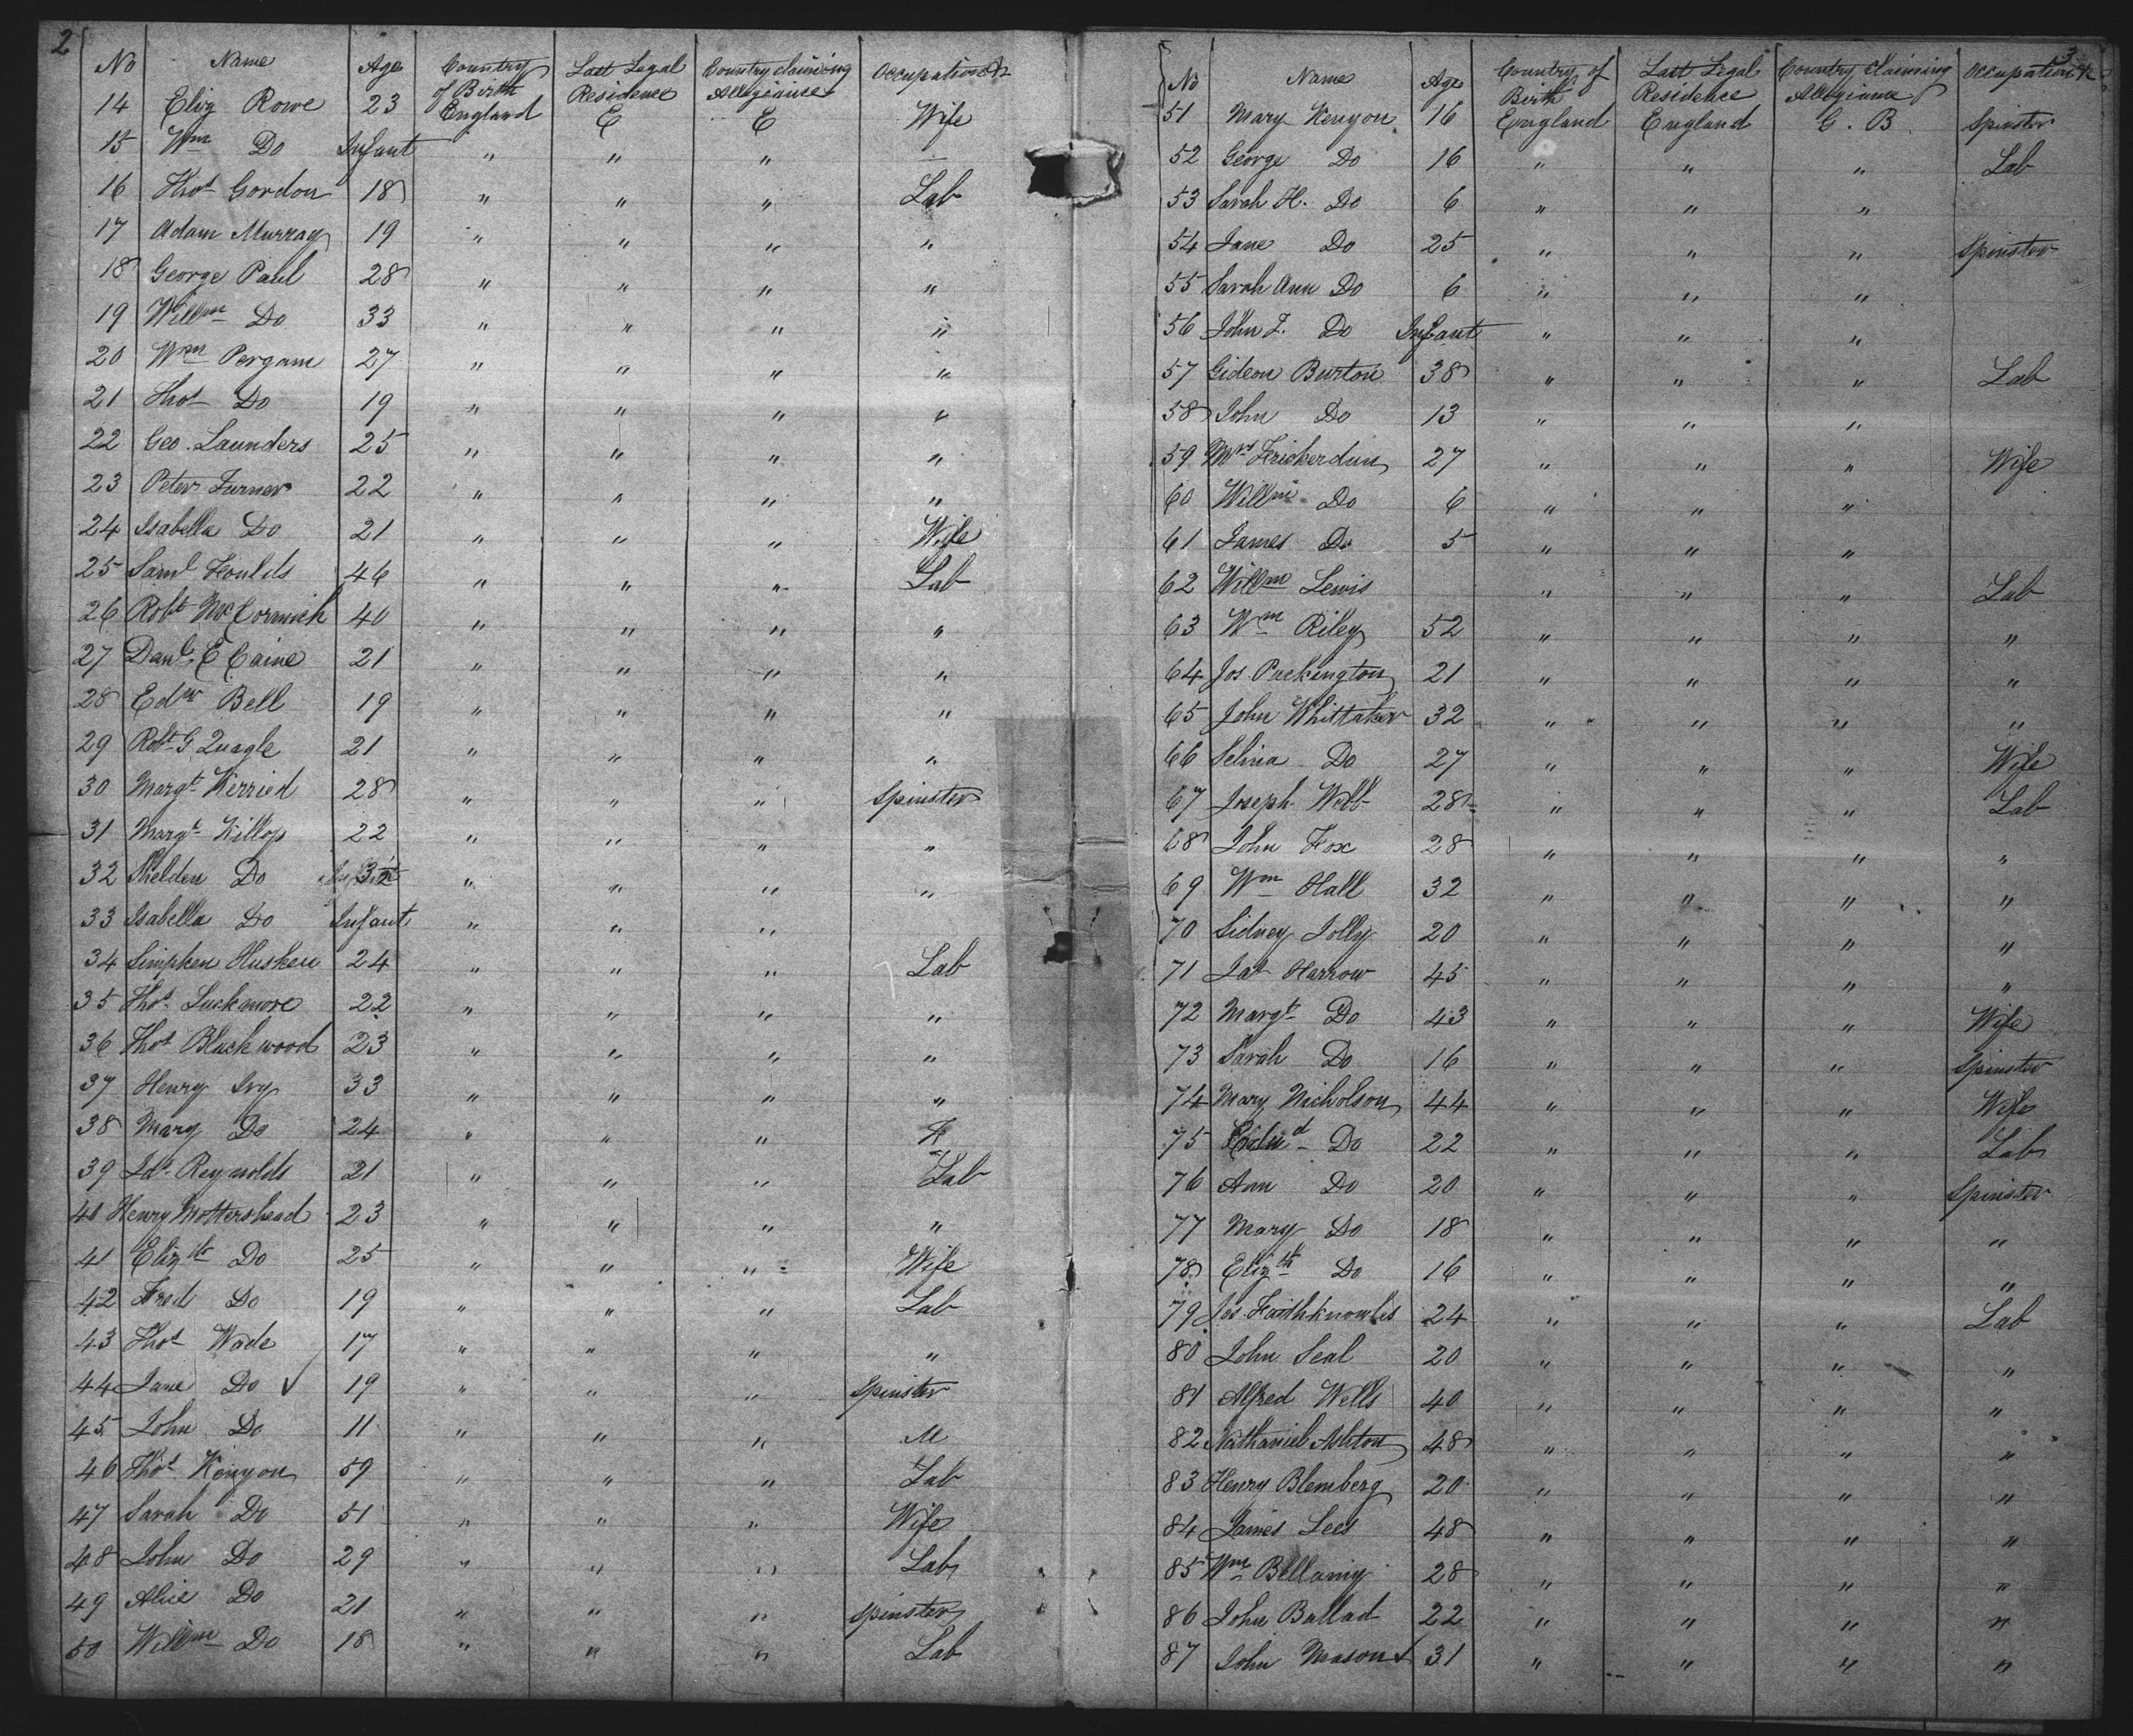 2
No Name Age Country of Birth Last Legal Residence Country claiming Allegiance Occupation &c
14 Eliz Rowe 23 England E E Wife
15 Wm Do Infant " " " —
16 Thos Gordon 18 " " " Lab
17 Adam Murray 19 " " " "
18 George Paul 28 " " " "
19 Willm Do 33 " " " "
20 Wm Pergam 27 " " " "
21 Thos Do 19 " " " "
22 Geo. Saunders 25 " " " "
23 Peter Turner 22 " " " "
24 Isabella Do 21 " " " Wife
25 Saml Foulds 46 " " " Lab
26 Robt McCormick 40 " " " "
27 Danl E Caine 21 " " " "
28 Edw Bell 19 " " " "
29 Robt G Quagle 21 " " " "
30 Margt Kerried 28 " " " Spinster
31 Margt Killop 22 " " " "
32 Shelden Do 3 " " " "
33 Isabella Do Infant " " "
34 Simpken Husken 24 " " " Lab
35 Thos Luckmore 22 " " " "
36 Thos Blackwood 23 " " " "
37 Henry Ivy 33 " " " "
38 Mary Do 24 " " "
39 Jas Reynolds 21 " " " Lab
40 Henry Mottershead 23 " " " "
41 Elizth Do 25 " " " Wife
42 Fred Do 19 " " " Lab
43 Thos Wade 17 " " " "
44 Jane Do ✓ 19 " " " Spinster
45 John Do 11 " " " M
46 Thos Kenyon 59 " " " Lab
47 Sarah Do 51 " " " Wife
48 John Do 29 " " " Lab
49 Alice Do 21 " " " Spinster
50 Willm Do 18 " " " Lab
3
No Name Age Country of Birth Last Legal Residence Country Claiming Allegiance Occupation &c
51 Mary Kenyon 16 England England G. B Spinster
52 George Do 16 " " " Lab
53 Sarah H. Do 6 " " "
54 Jane Do 25 " " " Spinster
55 Sarah Ann Do 6 " " "
56 John T. Do Infant " " "
57 Gideon Burton 38 " " " Lab
58 John Do 13 " " "
59 Mrs Frickerdun 27 " " " Wife
60 Willm Do 6 " " "
61 James Do 5 " " "
62 Willm Lewis " " " Lab
63 Wm Riley 52 " " " "
64 Jos Packington 21 " " " "
65 John Whittaker 32 " " " "
66 Selina Do 27 " " " Wife
67 Joseph Webb 28 " " " Lab
68 John Fox 28 " " " "
69 Wm Hall 32 " " " "
70 Sidney Jolly 20 " " " "
71 Jas Harrow 45 " " " "
72 Margt Do 43 " " " Wife
73 Sarah Do 16 " " " Spinster
74 Mary Nicholson 44 " " " Wife
75 Edwd Do 22 " " " Lab
76 Ann Do 20 " " " Spinster
77 Mary Do 18 " " " "
78 Elizth Do 16 " " " "
79 Jos. Faithknowles 24 " " " Lab
80 John Seal 20 " " " "
81 Alfred Wells 40 " " " "
82 Nathaniel Ashton 48 " " " "
83 Henry Blemberg 20 " " " "
84 James Lees 48 " " " "
85 Wm Bellamy 28 " " " "
86 John Ballad 22 " " " "
87 John Mason 31 " " " "